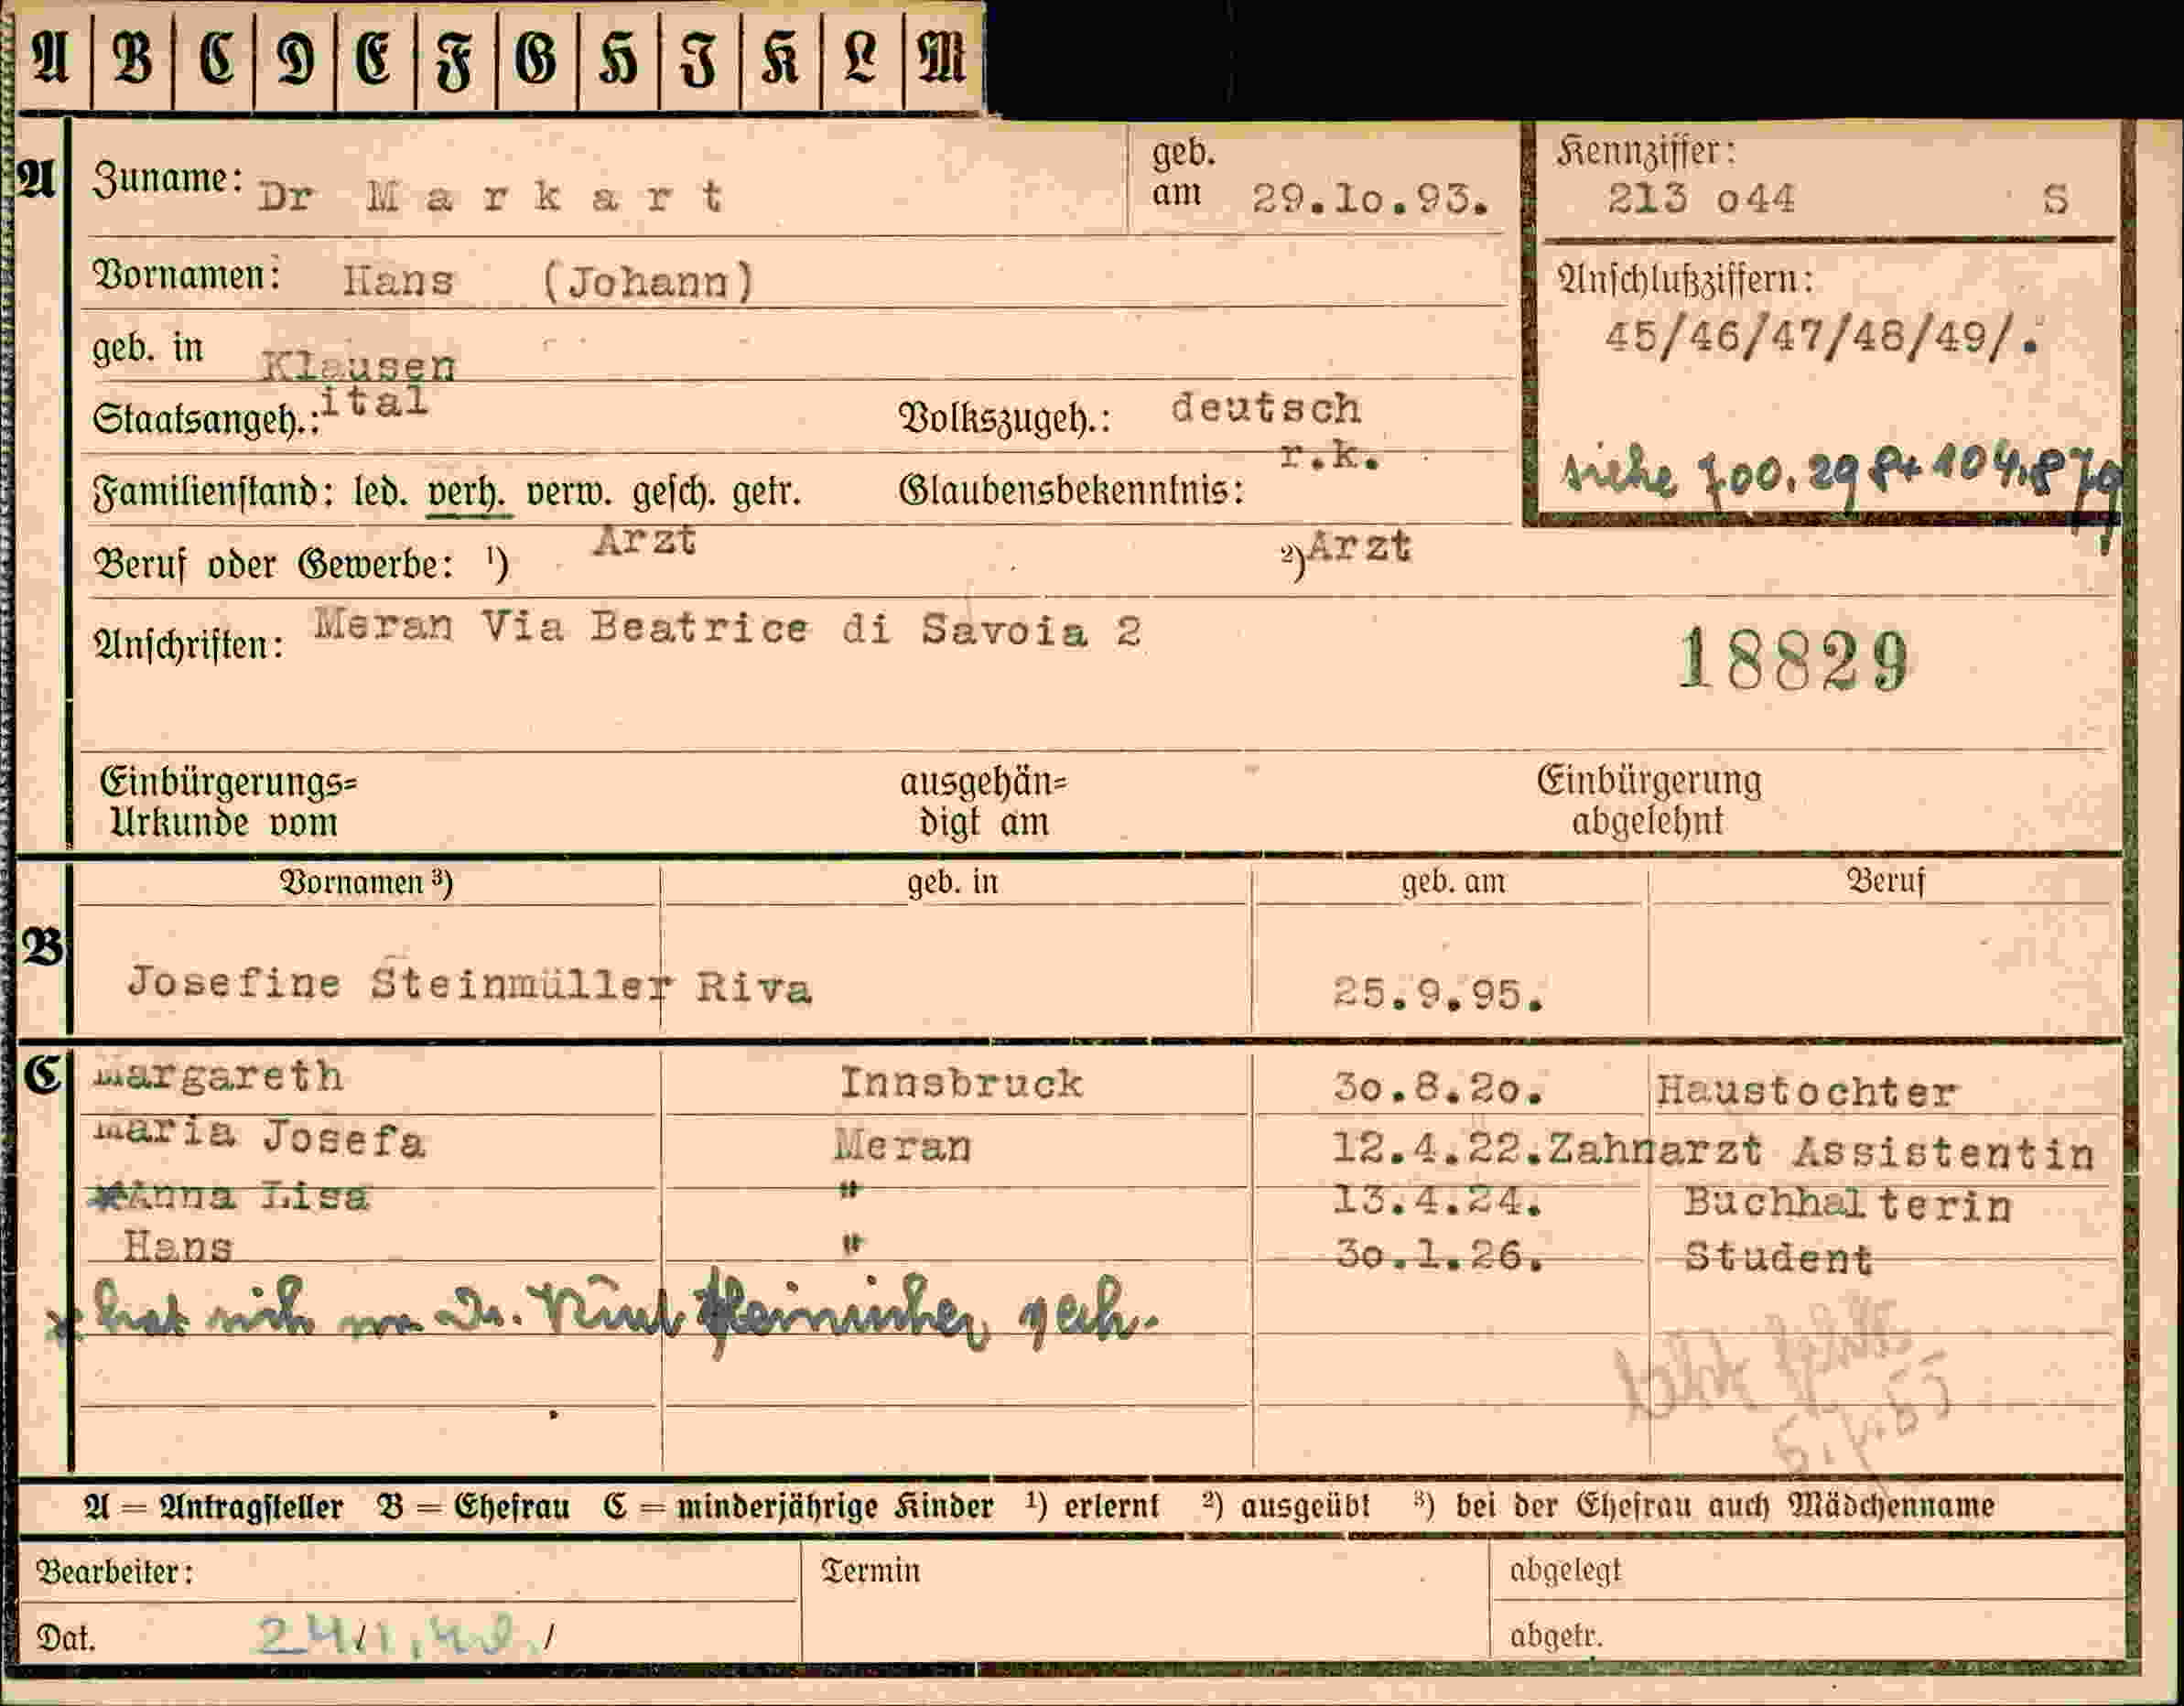 A B C D E F G H J K L M
A Zuname: Dr Markart geb. am 29.10.93. Kennziffer: 213 o44 S
Vornamen: Hans (Johann) Anschlußziffern:
45/46/47/48/49/.
geb. in Klausen
Staatsangeh.: ital Volkszugeh.: deutsch
siehe 700.298 + 104.879
Familienstand: led. verh. verw. gesch. getr. Glaubensbekenntnis: r.k.
Beruf oder Gewerbe: ¹) Arzt ²) Arzt
Anschriften: Meran Via Beatrice di Savoia 2
18829
Einbürgerungs= ausgehän= Einbürgerung
Urkunde vom digt am abgelehnt
Vornamen ³) geb. in geb. am Beruf
B Josefine Steinmüller Riva 25.9.95.
C Margareth Innsbruck 3o.8.2o. Haustochter
Maria Josefa Meran 12.4.22. Zahnarzt Assistentin
Anna Lisa " 13.4.24. Buchhalterin
Hans " 3o.1.26. Student
x hat sich Dr.
A = Antragsteller B = Ehefrau C = minderjährige Kinder ¹) erlernt ²) ausgeübt ³) bei der Ehefrau auch Mädchenname
Bearbeiter: Termin abgelegt
Dat. 24/1.40./ abgetr.